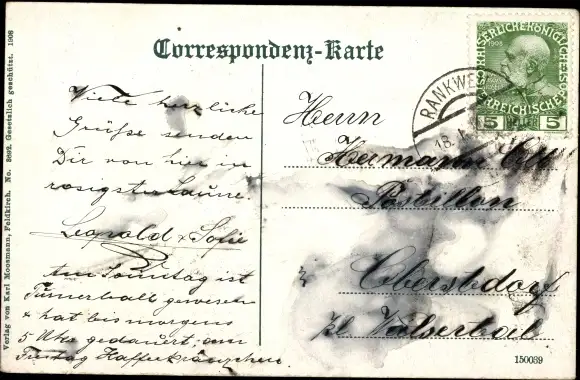 Correspondenz-Karte
Viele herzliche
Grüße senden
Dir von hier in
rosigster Laune.
Leopold & Sofie
Am Sonntag ist
Turnerball gewesen
& hat bis morgens
5 Uhr gedauert, am
Freitag Kaffeekränzchen
Herrn
Hermann
Postillon
Oberstdorf
RANKWE
18.
KAISERLICHE KÖNIGLICHE
ÖSTERREICHISCHE
1908
5 5
Verlag von Karl Moosmann, Feldkirch. No. 3692. Gesetzlich geschützt. 1908
150039